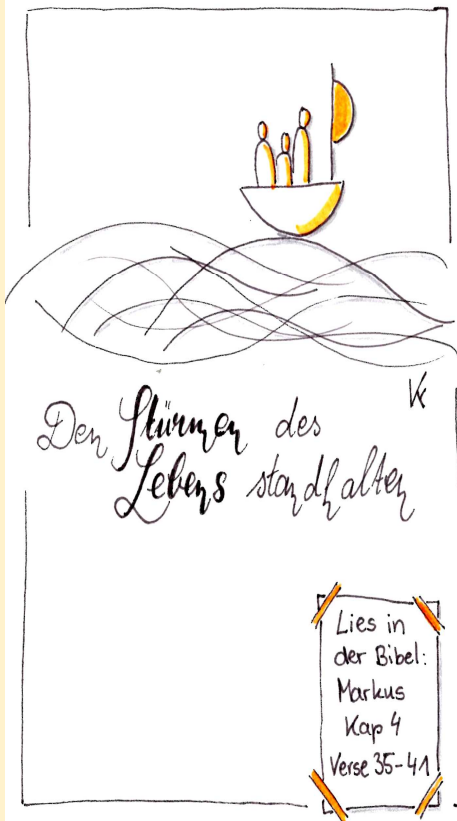 Den Stürmen des
Lebens standhalten
Lies in
der Bibel:
Markus
Kap 4
Verse 35-41